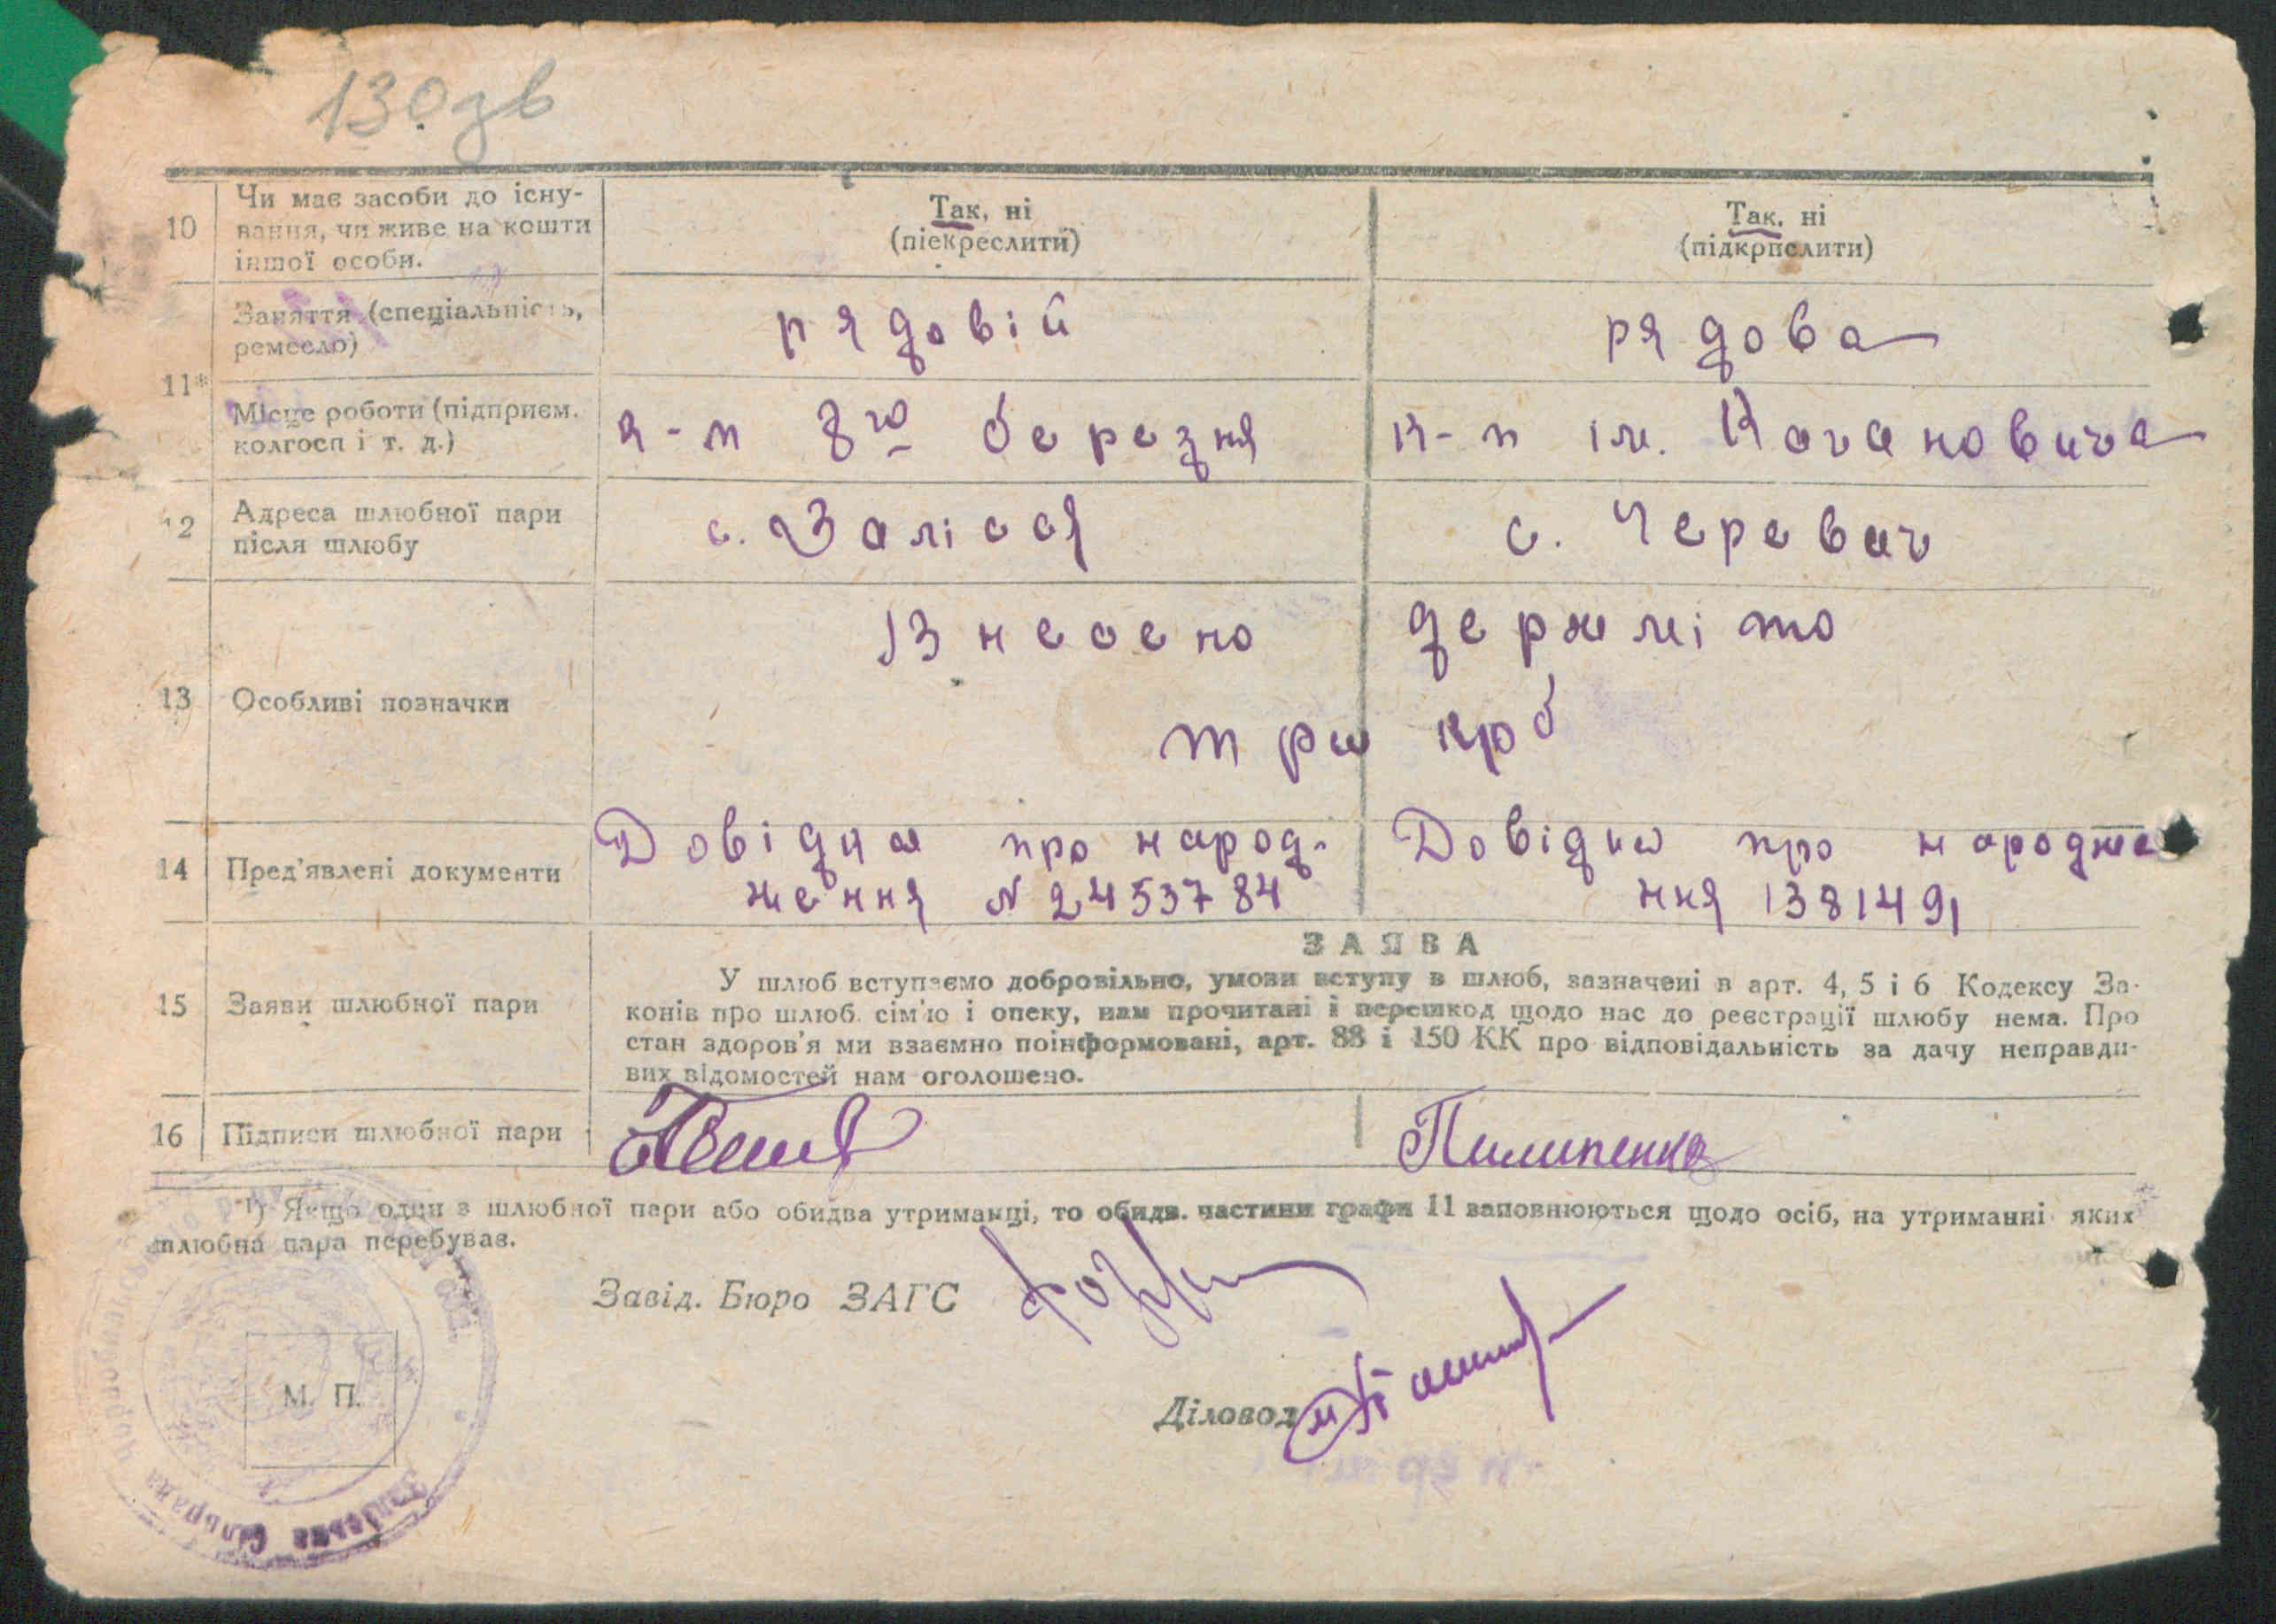 130зв
10
Чи має засоби до існу-
вання, чи живе на кошти
іншої особи.
Так, ні
(піекреслити)
Так, ні
(підкрпслити)
11*
Заняття (спеціальність,
ремесло)
рядовій
рядова
Місце роботи (підприєм.
колгосп і т. д.)
к-п 8го березня
к-п ім. Кагановича
12
Адреса шлюбної пари
після шлюбу
с. Залісся
с. Черевач
13
Особливі позначки
Внесено держміто
три крб
14
Пред'явлені документи
Довідка про народ-
ження № 2453784
Довідка про народже
ння 1381491
15
Заяви шлюбної пари
ЗАЯВА
У шлюб вступаємо добровільно, умови вступу в шлюб, зазначені в арт. 4, 5 і 6 Кодексу За-
конів про шлюб сім'ю і опеку, нам прочитані і перешкод щодо нас до реєстрації шлюбу нема. Про
стан здоров'я ми взаємно поінформовані, арт. 88 і 150 КК про відповідальність за дачу неправди-
вих відомостей нам оголошено.
16
Підписи шлюбної пари
Пилипенко
1) Якщо один з шлюбної пари або обидва утриманці, то обидв. частини графи 11 заповнюються щодо осіб, на утриманні яких
шлюбна пара перебував.
Завід. Бюро ЗАГС
Діловод
М. П.
Сільрада